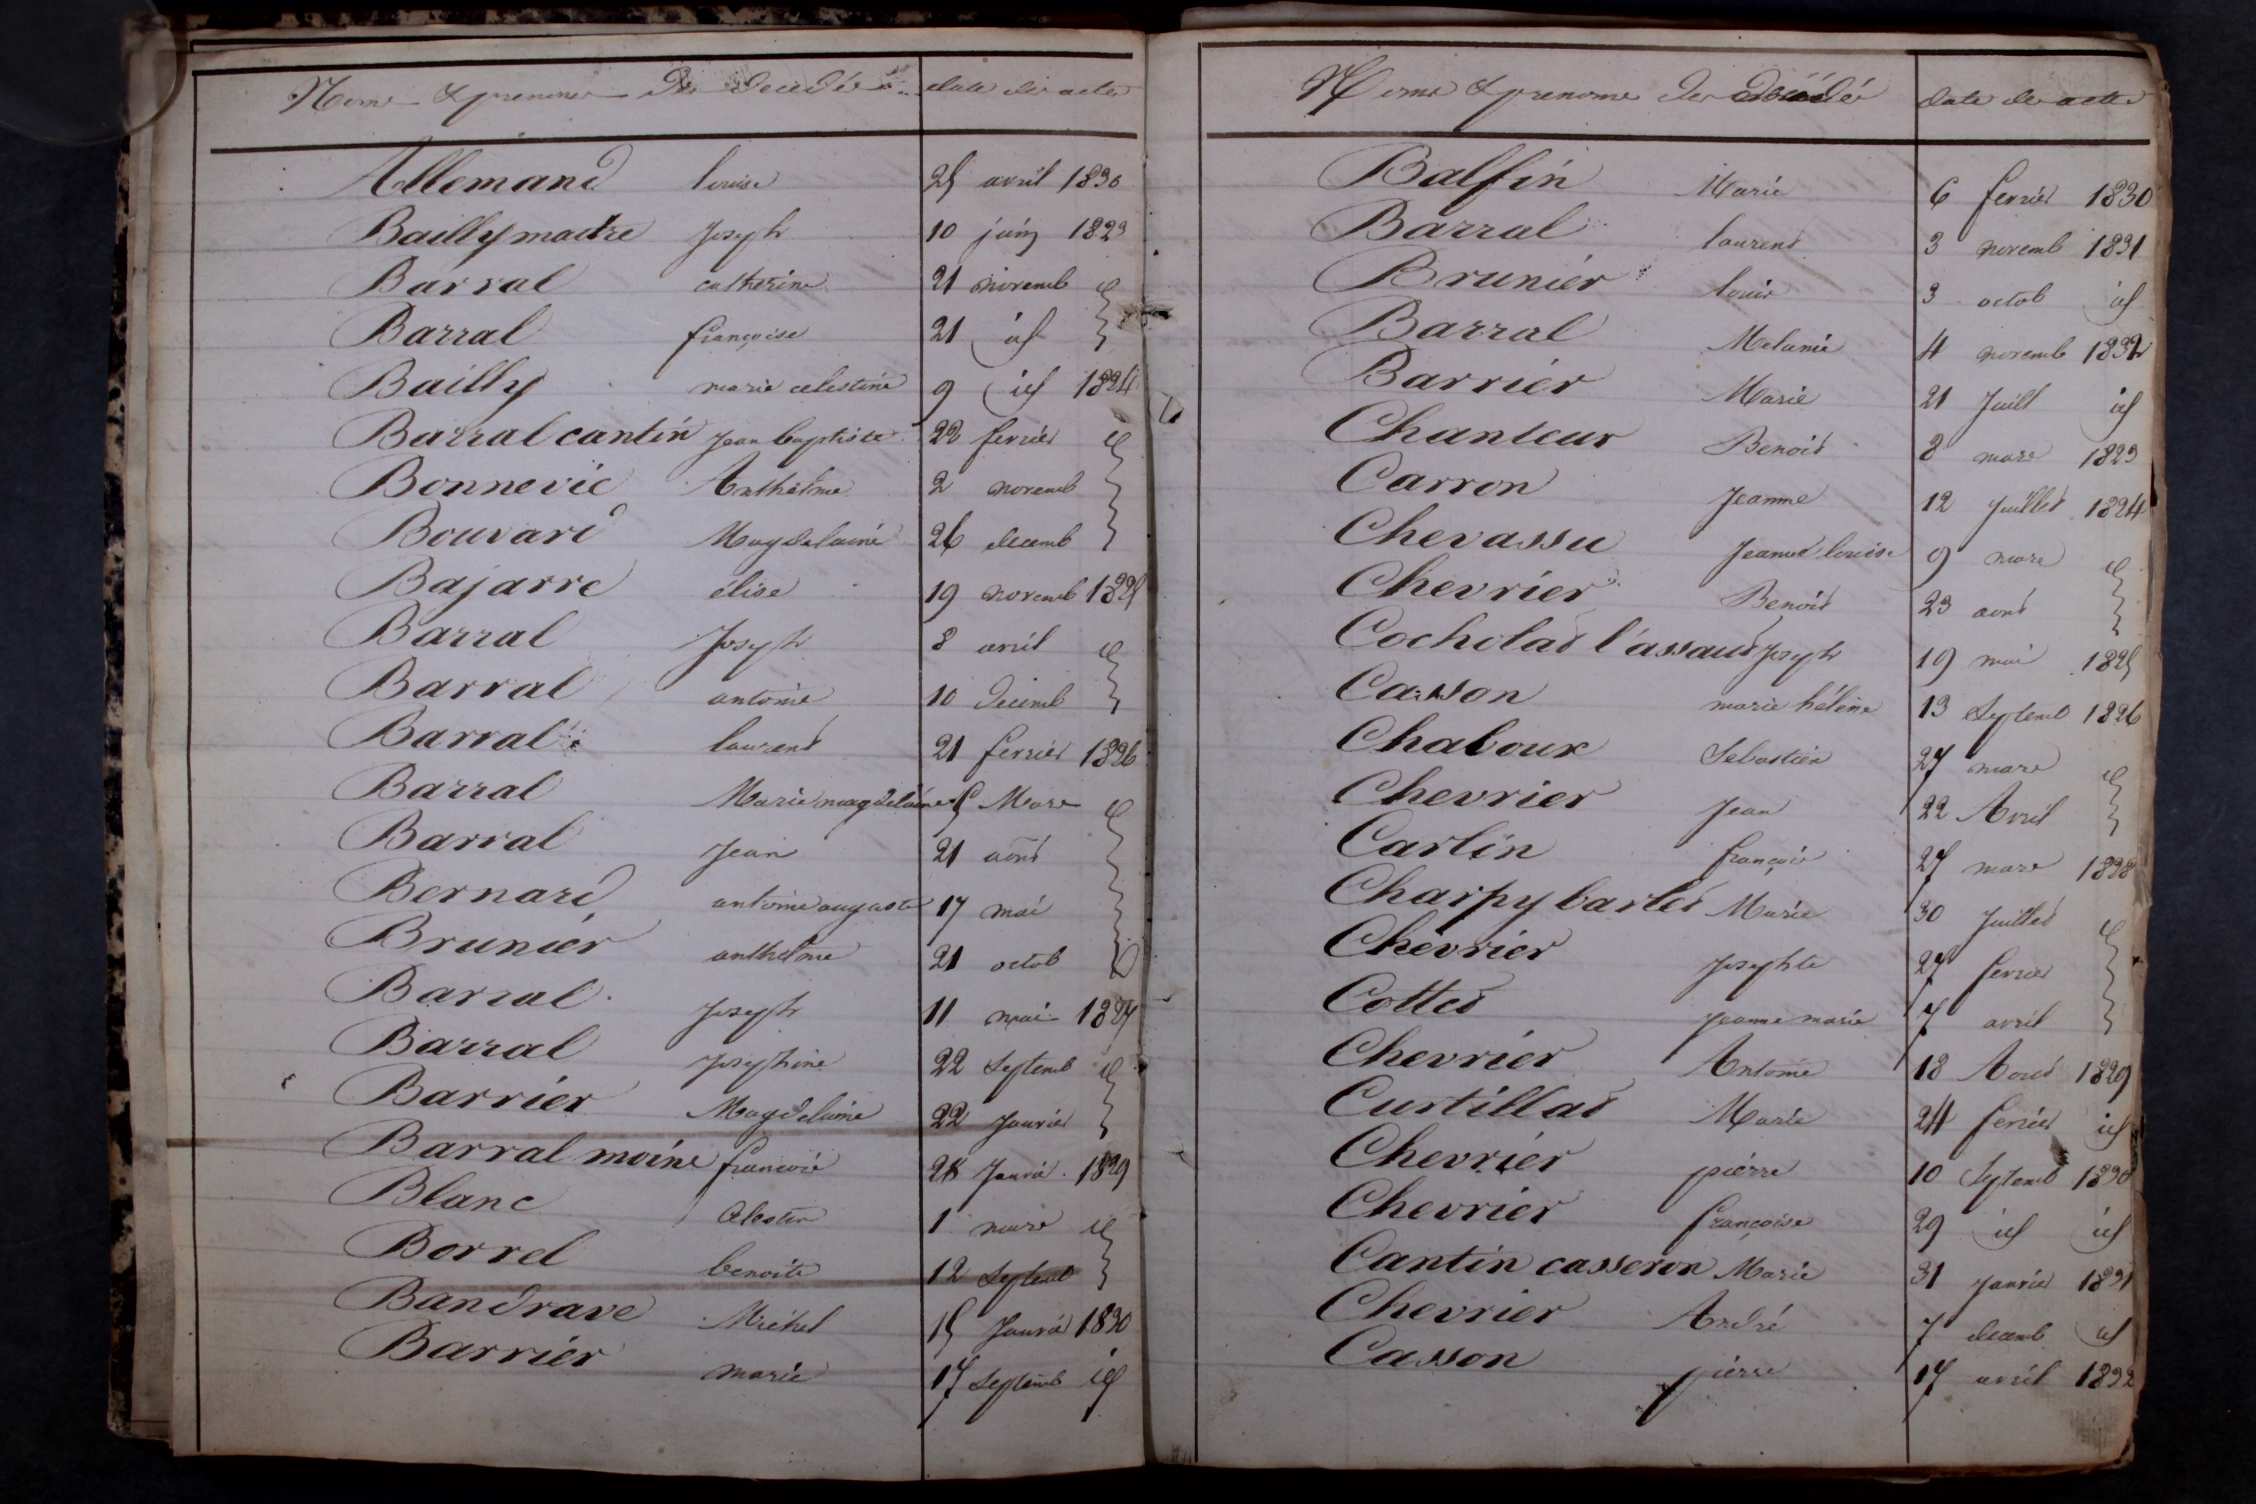 Noms & prenoms des decédés date des actes
Allemand louise 25 avril 1830
Bailly maitre Joseph 10 juin 1823
Barral catherine 21 novemb id
Barral françoise 21 id
Bailly marie celestine 9 id 1824
Barral cantin Jean baptiste 22 fevrier id
Bonnevie Anthelme 2 novemb
Bouvard Magdelaine 26 decemb
Bajarre élise 19 novemb 1825
Barral Joseph 8 avril id
Barral antoine 10 decemb
Barral laurent 21 fevrier 1826
Barral Marie magdelaine 5 Mars id
Barral Jean 21 aout
Bernard antoine auguste 17 mai
Brunier anthelme 21 octob
Barral Joseph 11 mai 1827
Barral Josephine 22 Septemb id
Barrier Magdelaine 22 Janvier
Barral moine francois 28 Janvier 1829
Blanc Celestin 1 mars id
Borrel benoite 12 Septemb
Bandrave Michel 15 Janvier 1830
Barrier marie 17 Septemb id
Noms & prenoms des decédés date des actes
Balfin Marie 6 fevrier 1830
Barral laurent 3 novemb 1831
Brunier louis 3 octob id
Barral Melanie 4 novemb 1832
Barrier Marie 21 Juill id
Chanteur Benoit 8 mars 1823
Carron Jeanne 12 Juillet 1824
Chevassu Jeanne louise 9 mars id
Chevrier Benoit 23 aout
Cocholat l'assaut Joseph 19 mai 1825
Casson marie hélène 13 Septemb 1826
Chaboux Sebastien 27 mars id
Chevrier Jean 22 Avril
Carlin françois 27 mars 1828
Charpy barlet Marie 30 Juillet id
Chevrier Josephte 27 fevrier
Cottet Jeanne marie 7 avril
Chevrier Antoine 18 Aout 1829
Curtillat Marie 24 fevrier id
Chevrier pierre 10 Septemb 1830
Chevrier françoise 29 id id
Cantin casseron Marie 31 janvier 1831
Chevrier André 7 decemb id
Casson pierre 17 avril 1832